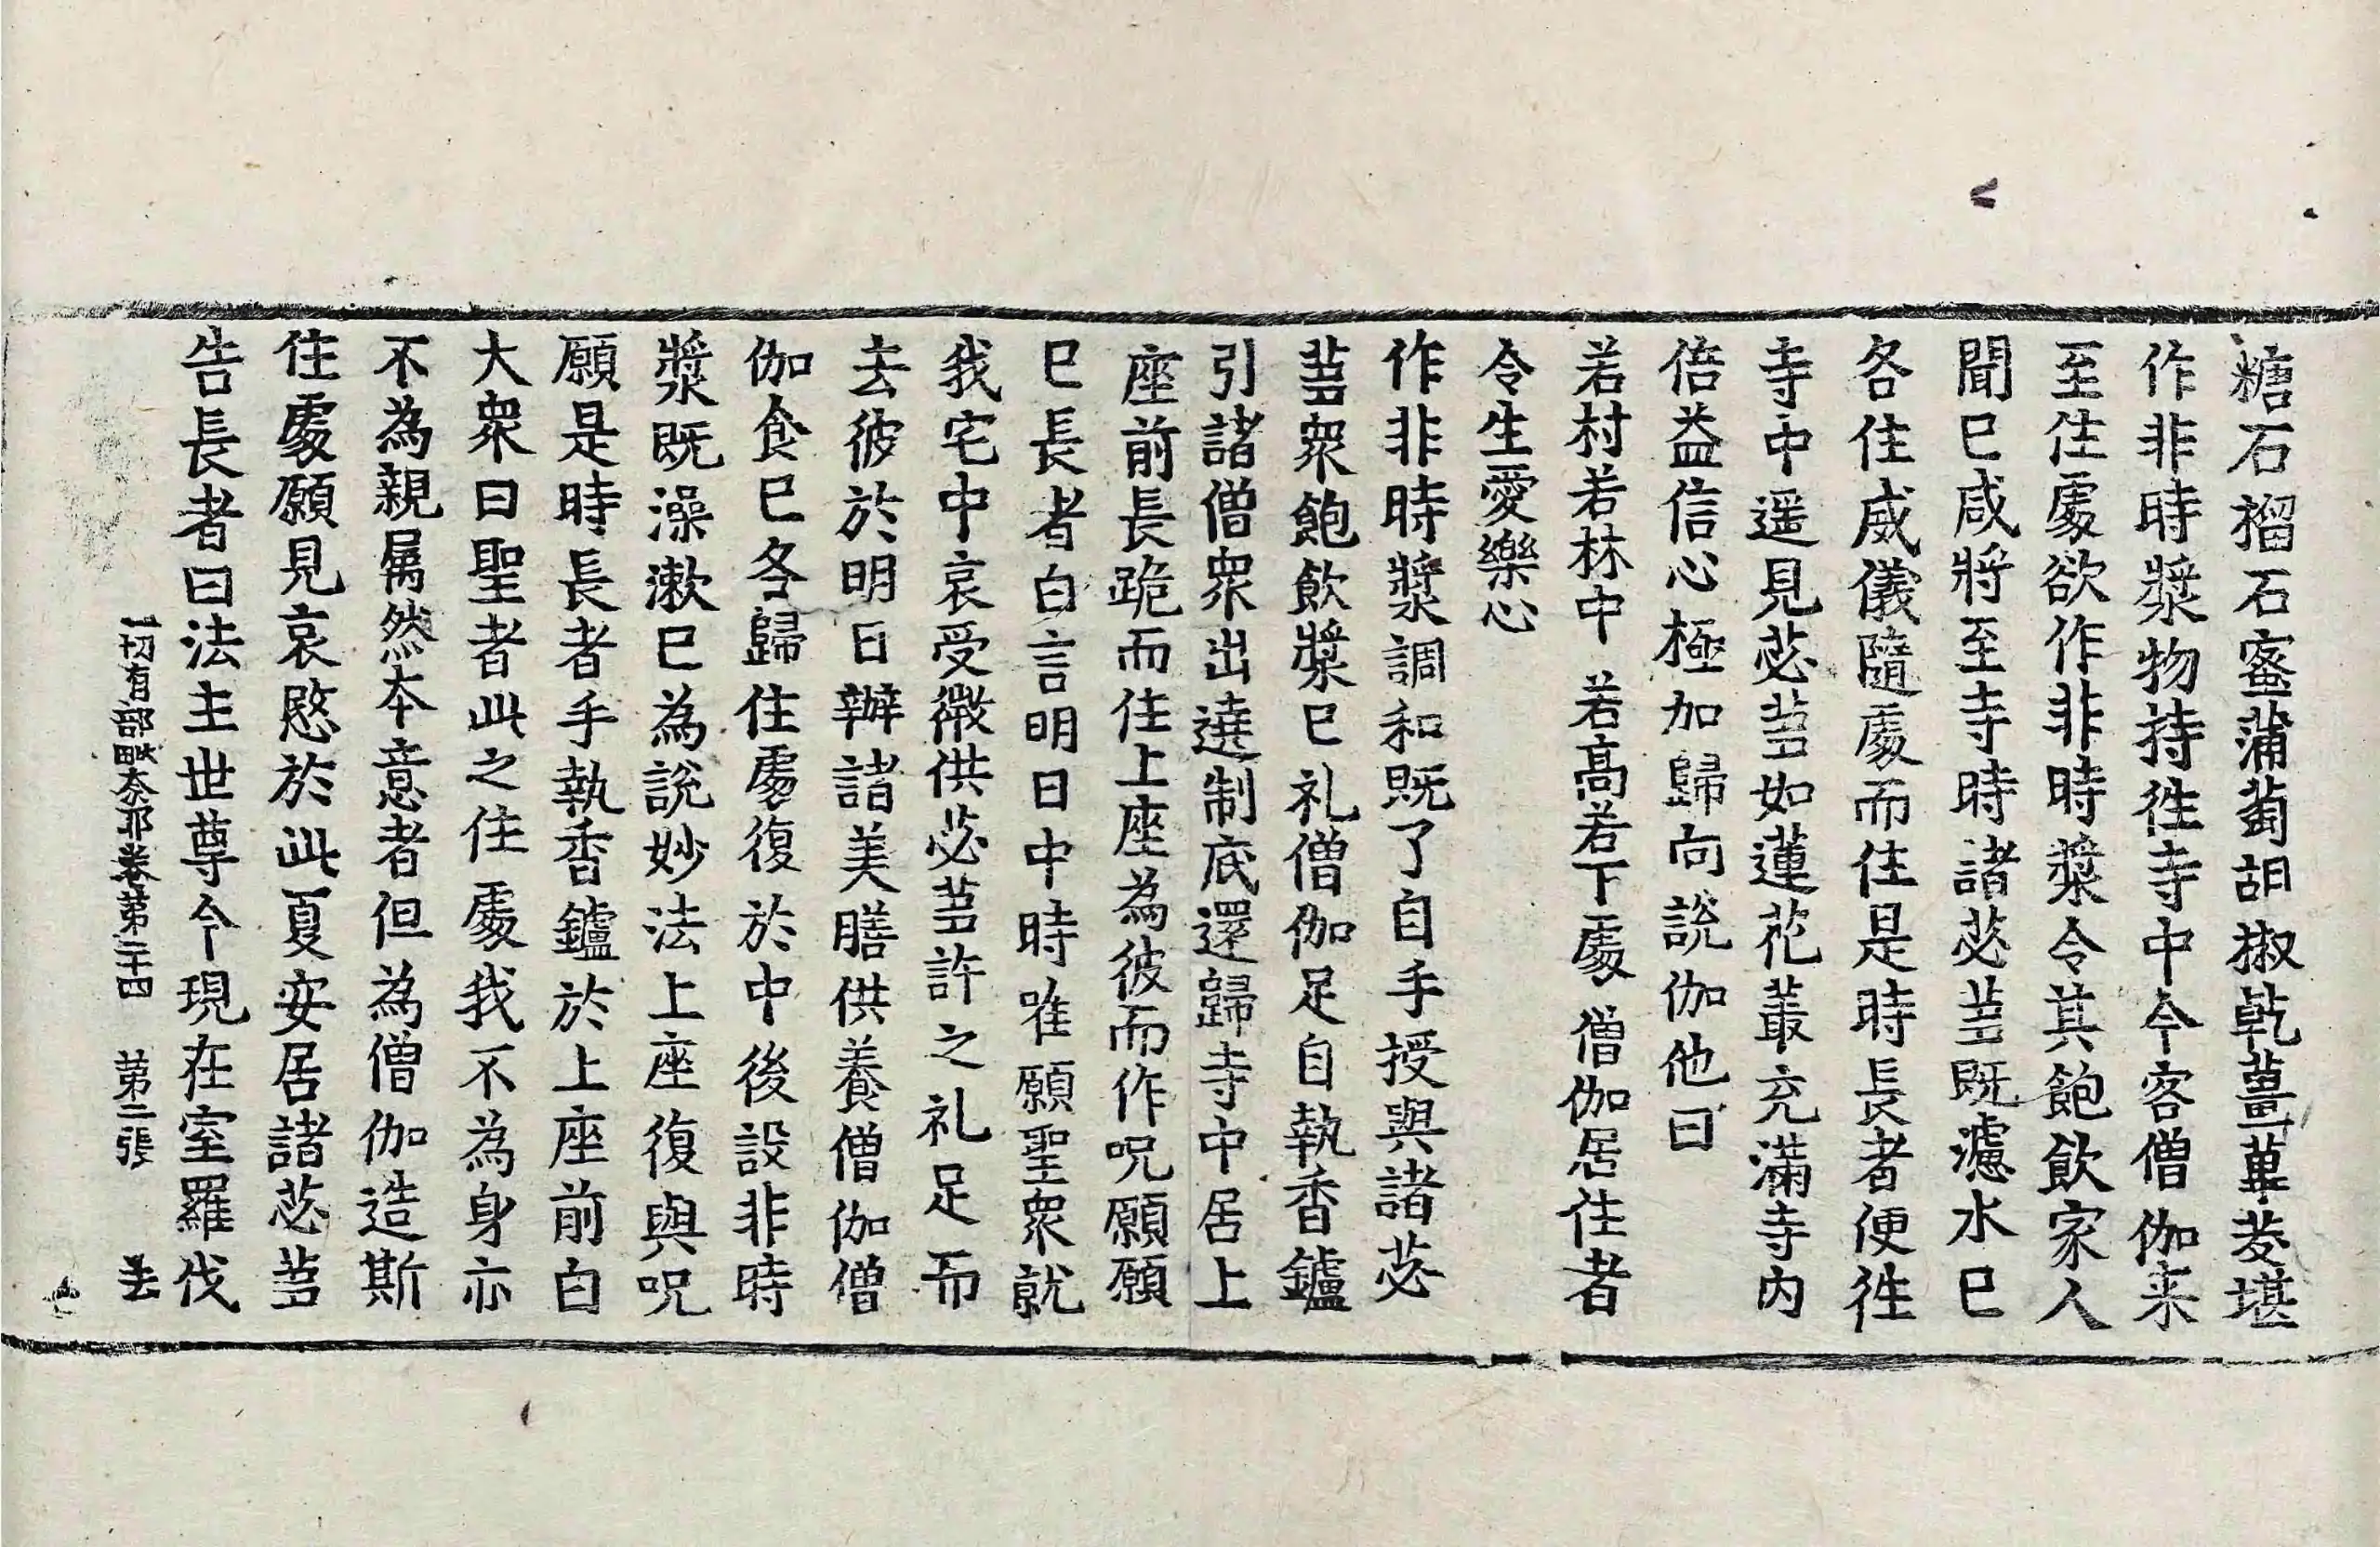 糖石榴石蜜蒲萄胡椒乹薑蓽茇堪
作非時漿物持徃寺中令客僧伽来
至住處欲作非時漿令其飽飲家人
聞已咸將至寺時諸苾蒭既濾水已
各住威儀隨處而住是時長者便徃
寺中遥見苾蒭如蓮花叢充滿寺内
倍益信心極加歸向說伽他曰
若村若林中　若高若下處　僧伽居住者
令生愛樂心
作非時漿調和既了自手授與諸苾
蒭衆飽飲漿已礼僧伽足自執香鑪
引諸僧衆出遶制底還歸寺中居上
座前長跪而住上座為彼而作呪願願
已長者白言明日中時唯願聖衆就
我宅中哀受微供苾蒭許之礼足而
去彼於明日辦諸美膳供養僧伽僧
伽食已各歸住處復於中後設非時
漿既澡漱已為說妙法上座復與呪
願是時長者手執香鑪於上座前白
大衆曰聖者此之住處我不為身亦
不為親屬然本意者但為僧伽造斯
住處願見哀愍於此夏安居諸苾蒭
告長者曰法主世尊今現在室羅伐
一切有部毗奈耶卷第二十四　第二張